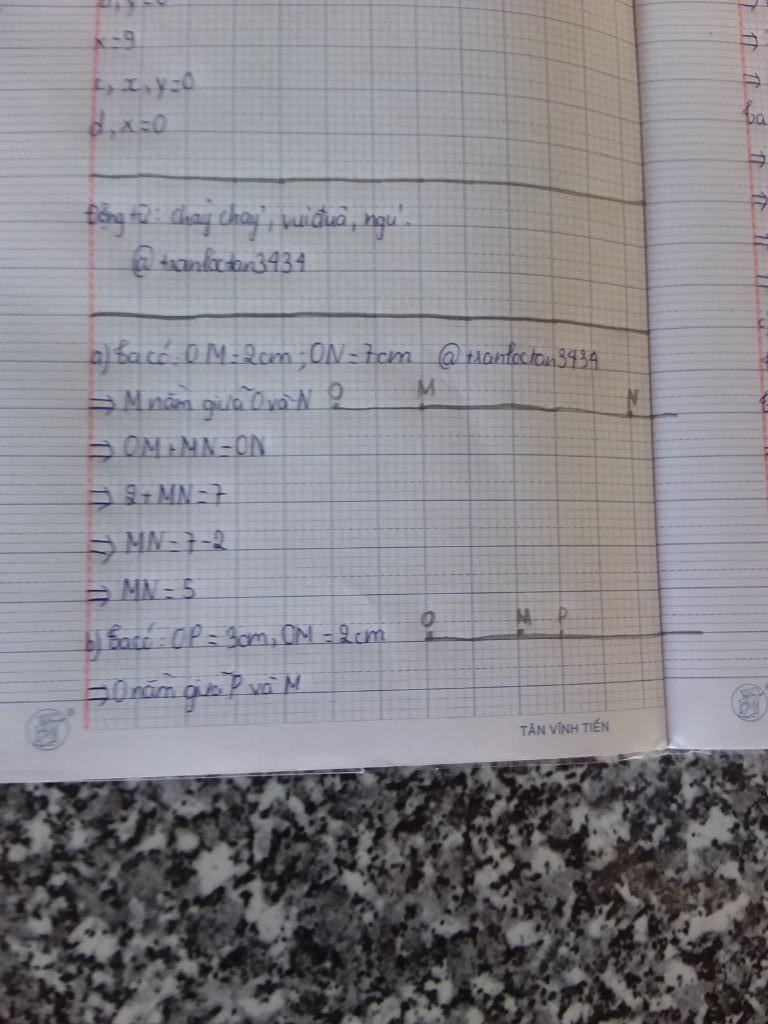 x=9
c, x, y=0
d, x=0
Động từ: chạy chạy, vui đùa, ngủ.
@tranloctan3434
a) Ta có: OM=2cm; ON=7cm @tranloctan3434
⇒ M nằm giữa O và N O M N
⇒ OM+MN=ON
⇒ 2+MN=7
⇒ MN=7-2
⇒ MN=5
b) Ta có: OP=3cm, OM=2cm O M P
⇒ O nằm giữa P và M
TÂN VĨNH TIẾN